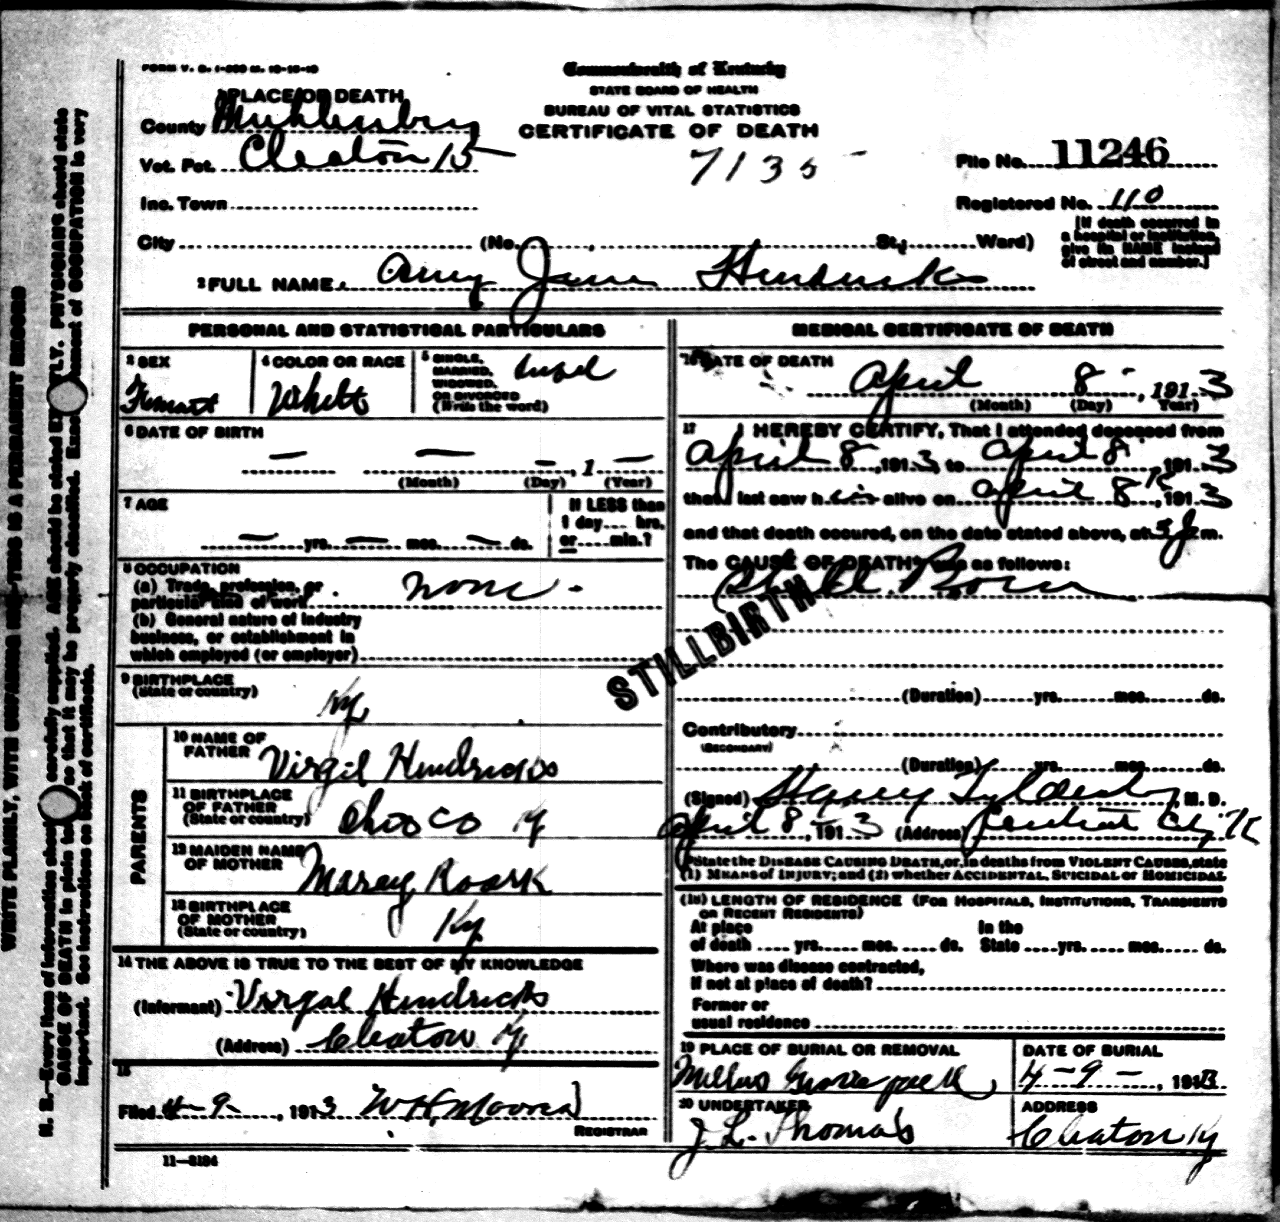 FORM V. S. 1-300 M. 10-18-10
Commonwealth of Kentucky
STATE BOARD OF HEALTH
BUREAU OF VITAL STATISTICS
CERTIFICATE OF DEATH
7135
1 PLACE OF DEATH
County Muhlenberg
Vot. Pct. Cleaton 15
Inc. Town
City (No. St.; Ward)
File No. 11246
Registered No. 110
[If death occurred in
a hospital or institution,
give its NAME instead
of street and number.]
2 FULL NAME Amy Jane Hendricks
PERSONAL AND STATISTICAL PARTICULARS
3 SEX
4 COLOR OR RACE
White
5 SINGLE,
MARRIED,
WIDOWED,
OR DIVORCED
(Write the word)
6 DATE OF BIRTH
— — — , 1 —
(Month) (Day) (Year)
7 AGE
— yrs. — mos. — ds.
If LESS than
1 day.... hrs.
or.....min.?
8 OCCUPATION
(a) Trade, profession, or
particular kind of work none
(b) General nature of industry
business, or establishment in
which employed (or employer)
9 BIRTHPLACE
(State or country)
Ky
PARENTS
10 NAME OF
FATHER Virgil Hendricks
11 BIRTHPLACE
OF FATHER
(State or country) Ohio Co Ky
12 MAIDEN NAME
OF MOTHER Marey Roark
13 BIRTHPLACE
OF MOTHER
(State or country) Ky
14 THE ABOVE IS TRUE TO THE BEST OF MY KNOWLEDGE
(Informant) Virgal Hendricks
(Address) Cleaton Ky
15
Filed 4-9 , 1913 W H Moore
REGISTRAR
11—8184
MEDICAL CERTIFICATE OF DEATH
16 DATE OF DEATH
April 8 , 1913
(Month) (Day) Year)
17 I HEREBY CERTIFY, That I attended deceased from
April 8 , 1913 to April 8 , 1913
that I last saw h alive on April 8 , 1913
and that death occured, on the date stated above, at m.
The CAUSE OF DEATH* was as follows:
Still Born
STILLBIRTH
(Duration) yrs. mos. ds.
Contributory
(SECONDARY)
(Duration) yrs. mos. ds.
(Signed) M. D.
April 8, 1913 (Address) Central City Ky
*State the DISEASE CAUSING DEATH, or, in deaths from VIOLENT CAUSES, state
(1) MEANS of INJURY; and (2) whether ACCIDENTAL, SUICIDAL or HOMICIDAL
(18) LENGTH OF RESIDENCE (FOR HOSPITALS, INSTITUTIONS, TRANSIENTS
OR RECENT RESIDENTS)
At place In the
of death .... yrs. mos. .... ds. State ....yrs. .... mos. ds.
Where was disease contracted,
If not at place of death?
Former or
usual residence
19 PLACE OF BURIAL OR REMOVAL
DATE OF BURIAL
4-9- , 1913
20 UNDERTAKER
J. L. Thomas
ADDRESS
Cleaton Ky
WRITE PLAINLY, WITH UNFADING INK—THIS IS A PERMANENT RECORD
N. B.—Every item of information should carefully supplied. AGE should be stated EXACTLY. PHYSICIANS should state
CAUSE OF DEATH in plain so that it may be properly classified. Exact statement of OCCUPATION is very
important. See instructions on back of certificate.